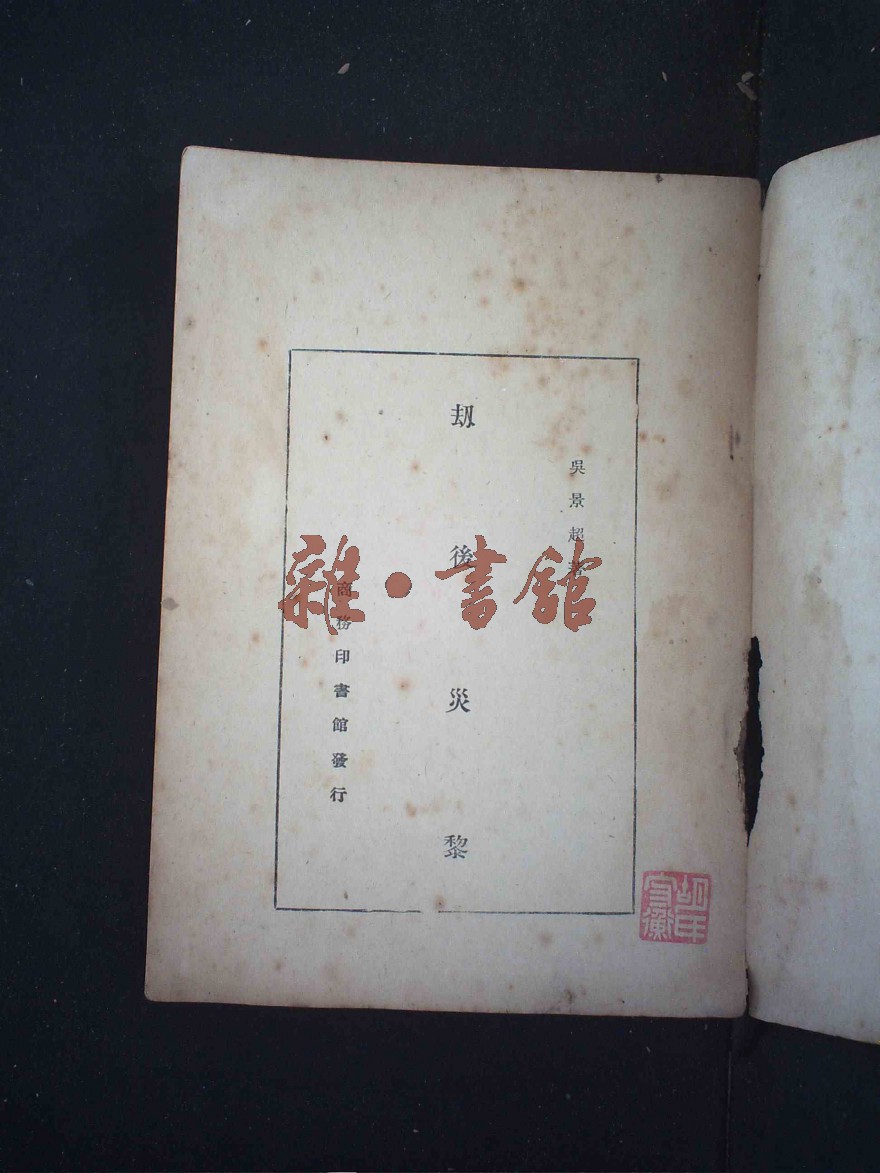 吳景超著
劫後災黎
商務印書館發行
雜·書館